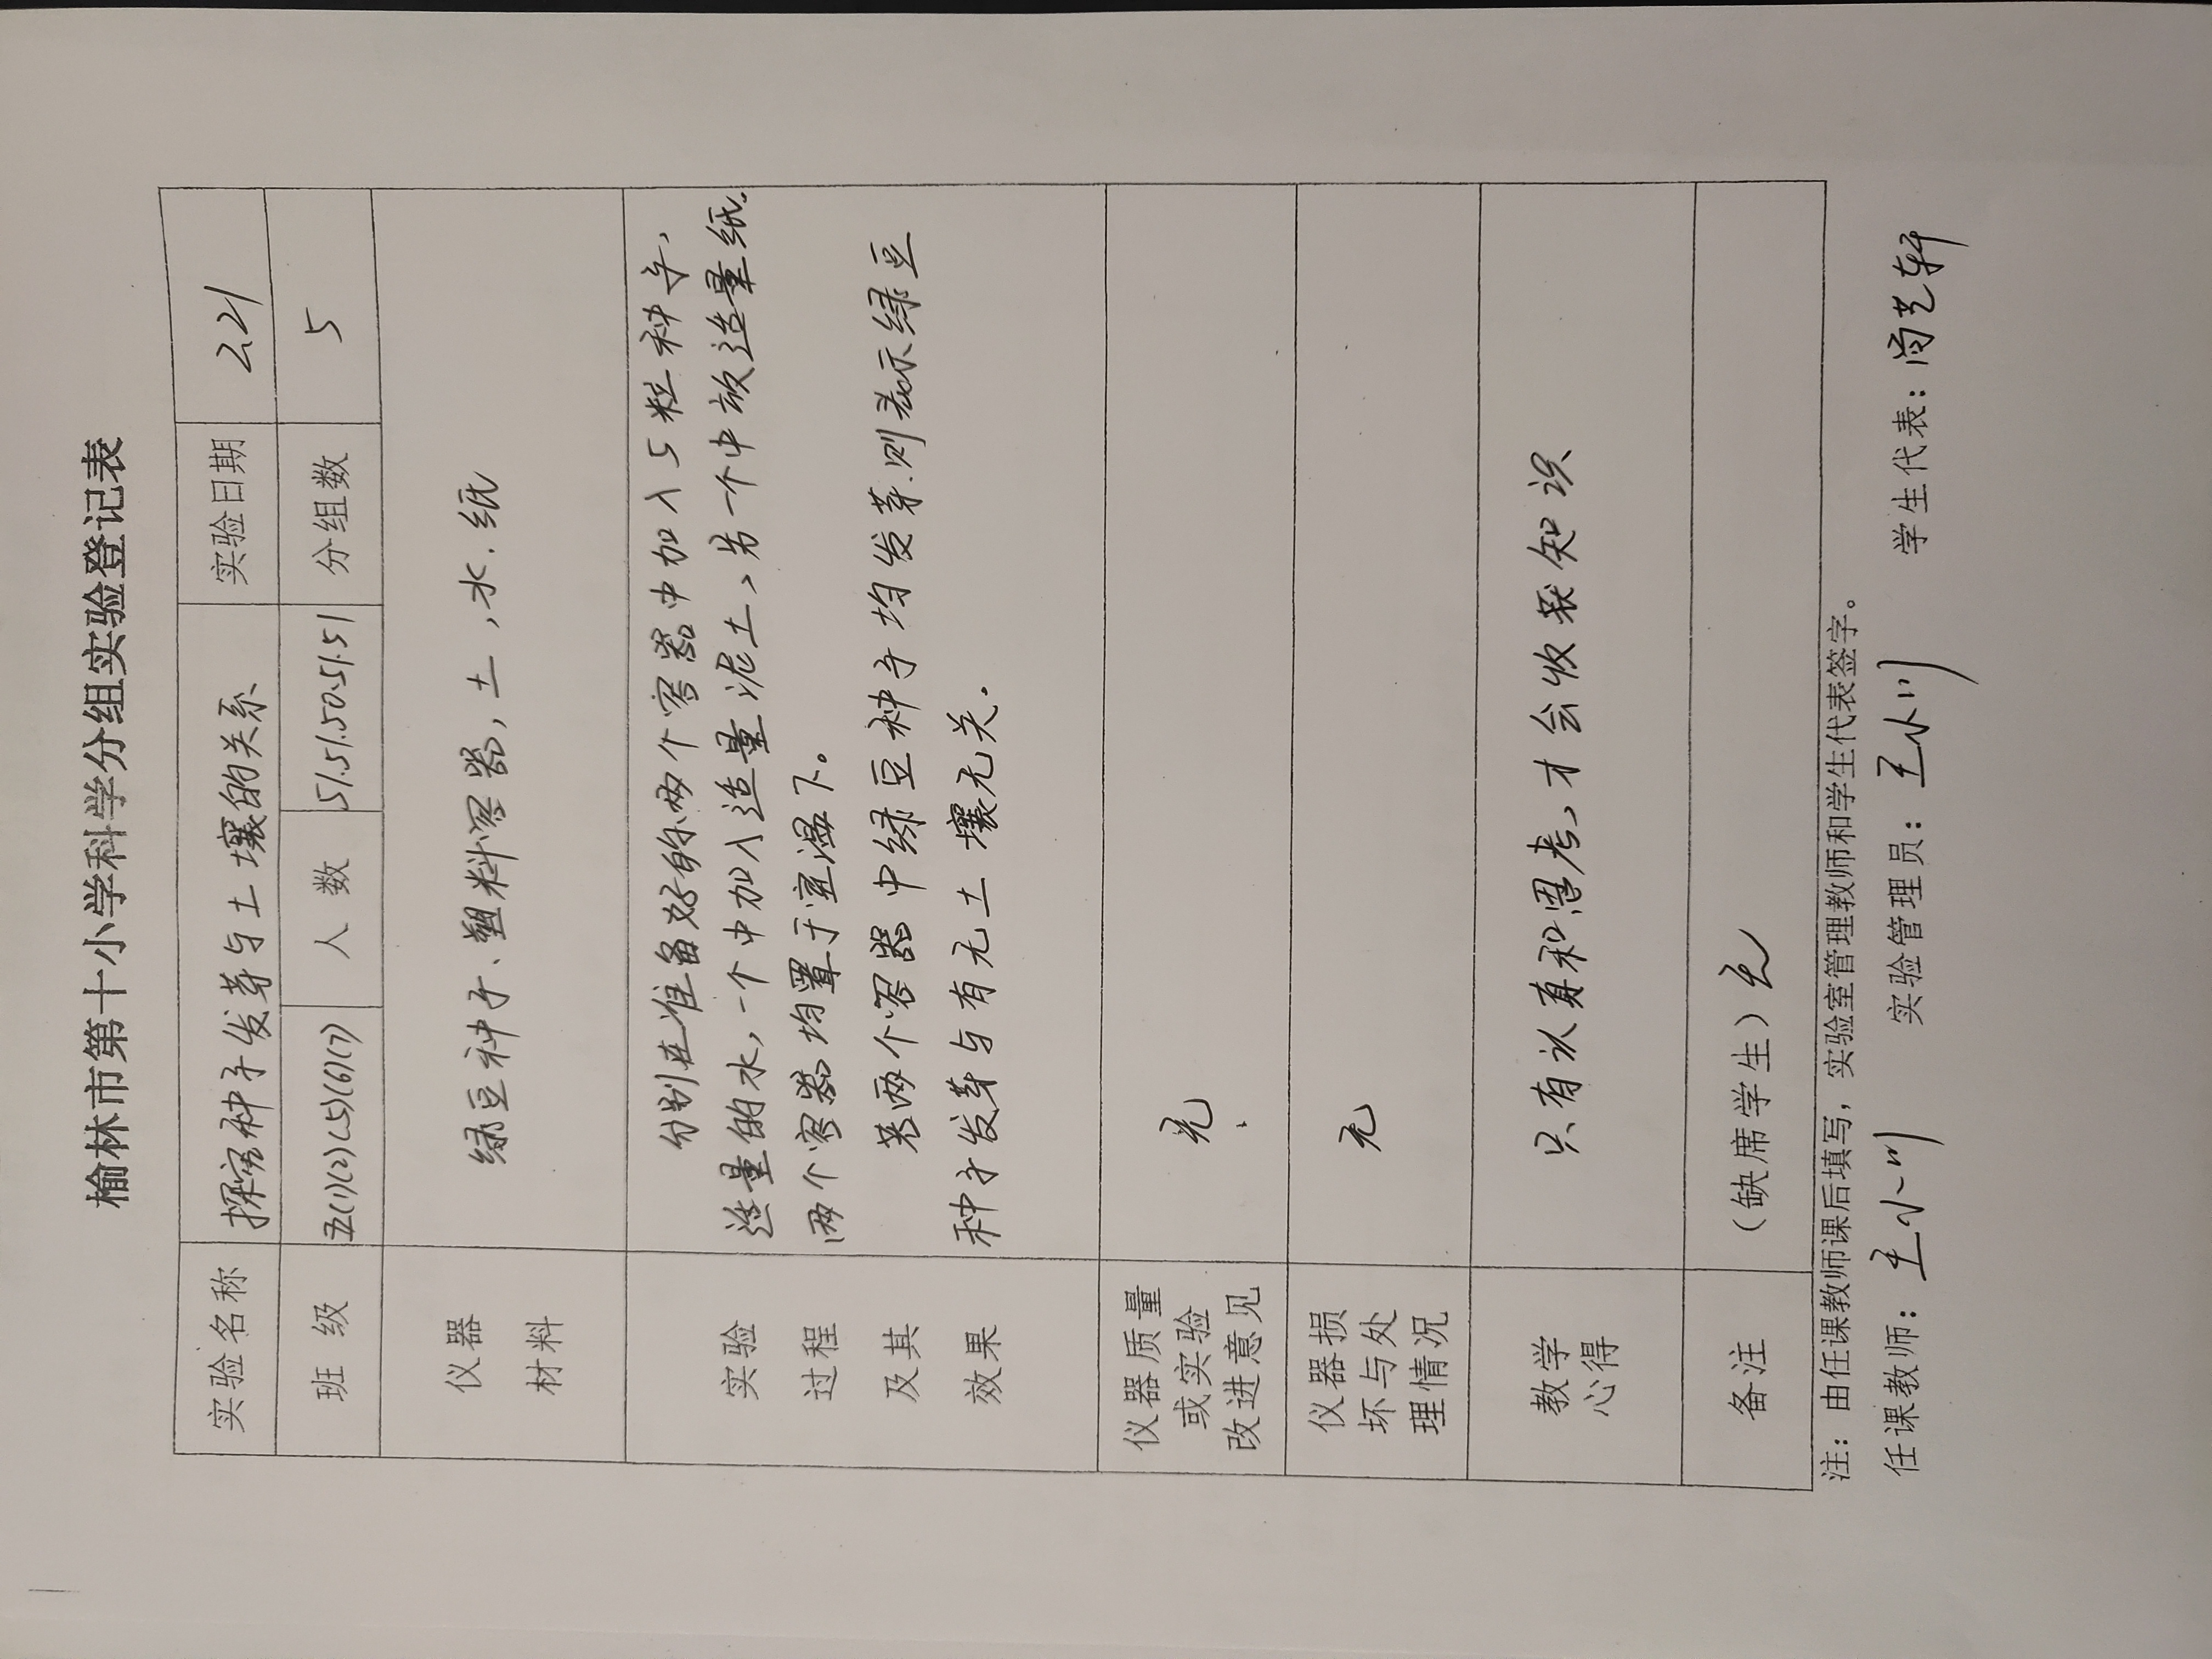 榆林市第十小学科学分组实验登记表
实验名称 探究种子发芽与土壤的关系 实验日期 2.21
班 级 五(1)(2)(5)(6)(7) 人 数 51.51.50.51.51 分组数 5
仪器
材料
绿豆种子、塑料容器,土,水.纸
实验
过程
及其
效果
分别在准备好的两个容器中加入5粒种子,
适量的水,一个中加入适量泥土,另一个中放适量纸.
两个容器均置于室温下。
若两个容器中绿豆种子均发芽.则表示绿豆
种子发芽与有无土壤无关.
仪器质量
或实验
改进意见
无
仪器损
坏与处
理情况
无
教学
心得
只有认真和思考,才会收获知识
备注
(缺席学生) 无
注:由任课教师课后填写,实验室管理教师和学生代表签字。
任课教师:王小川 实验管理员:王小川 学生代表: